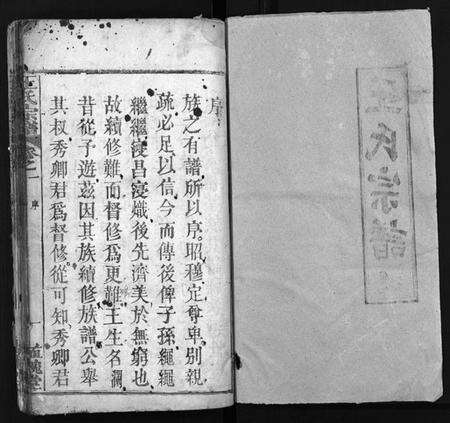 王氏宗譜
序
族之有譜所以序昭穆定尊卑別親
疏必足以信今而傳後俾子孫繩繩
繼繼寖昌寖熾後先濟美於無窮也
故續修難而督修為更難王生名瀾
昔從予遊茲因其族續修族譜公舉
其叔秀卿君為督修從可知秀卿君
氏宗譜
卷之一
序
一